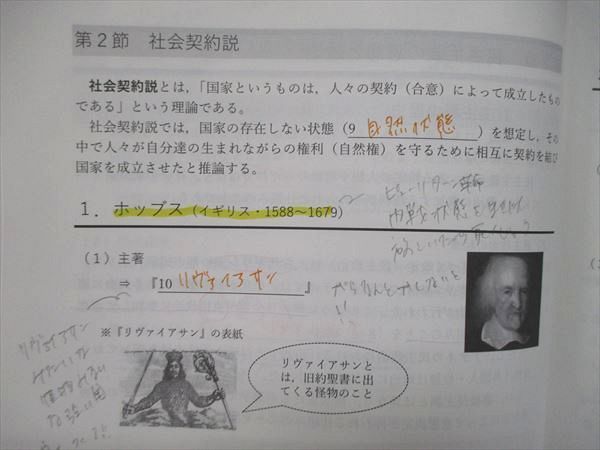 第2節 社会契約説
社会契約説とは,「国家というものは,人々の契約(合意)によって成立したもの
である」という理論である。
社会契約説では,国家の存在しない状態(9 自然状態 )を想定し,その
中で人々が自分達の生まれながらの権利(自然権)を守るために相互に契約を結び
国家を成立させたと推論する。
1. ホッブス(イギリス・1588~1679)
ピューリタン革命
内戦状態を
(1)主著
⇒ 『10 リヴァイアサン 』
ちゃんとやらないと
!!
※『リヴァイアサン』の表紙
リヴァイアサンと
は,旧約聖書に出
てくる怪物のこと
リヴァイアサン
みたいな